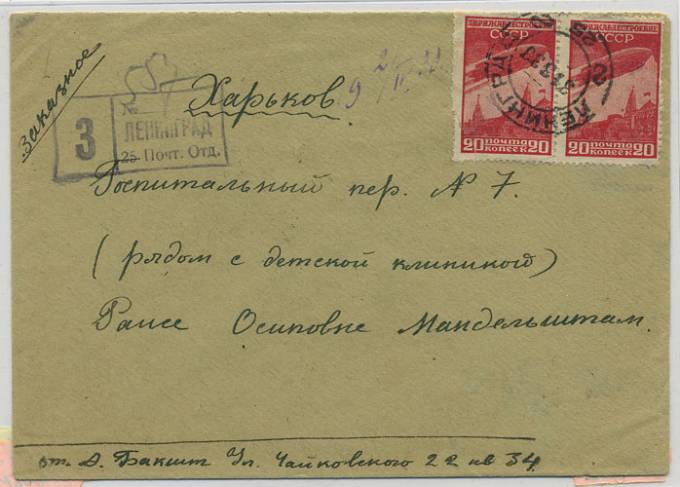 заказное
№ 557
З
ЛЕНИНГРАД
25 Почт. Отд.
Харьков
9
ДИРИЖАБЛЕСТРОЕНИЕ
СССР
20 ПОЧТА 20
КОПЕЕК
ДИРИЖАБЛЕСТРОЕНИЕ
СССР
20 ПОЧТА 20
КОПЕЕК
ЛЕНИНГРАД
25
Госпитальный пер. № 7.
(рядом с детской клиникой)
Раисе Осиповне Мандельштам.
от. Д. Бакшт Ул. Чайковского 22 кв 34